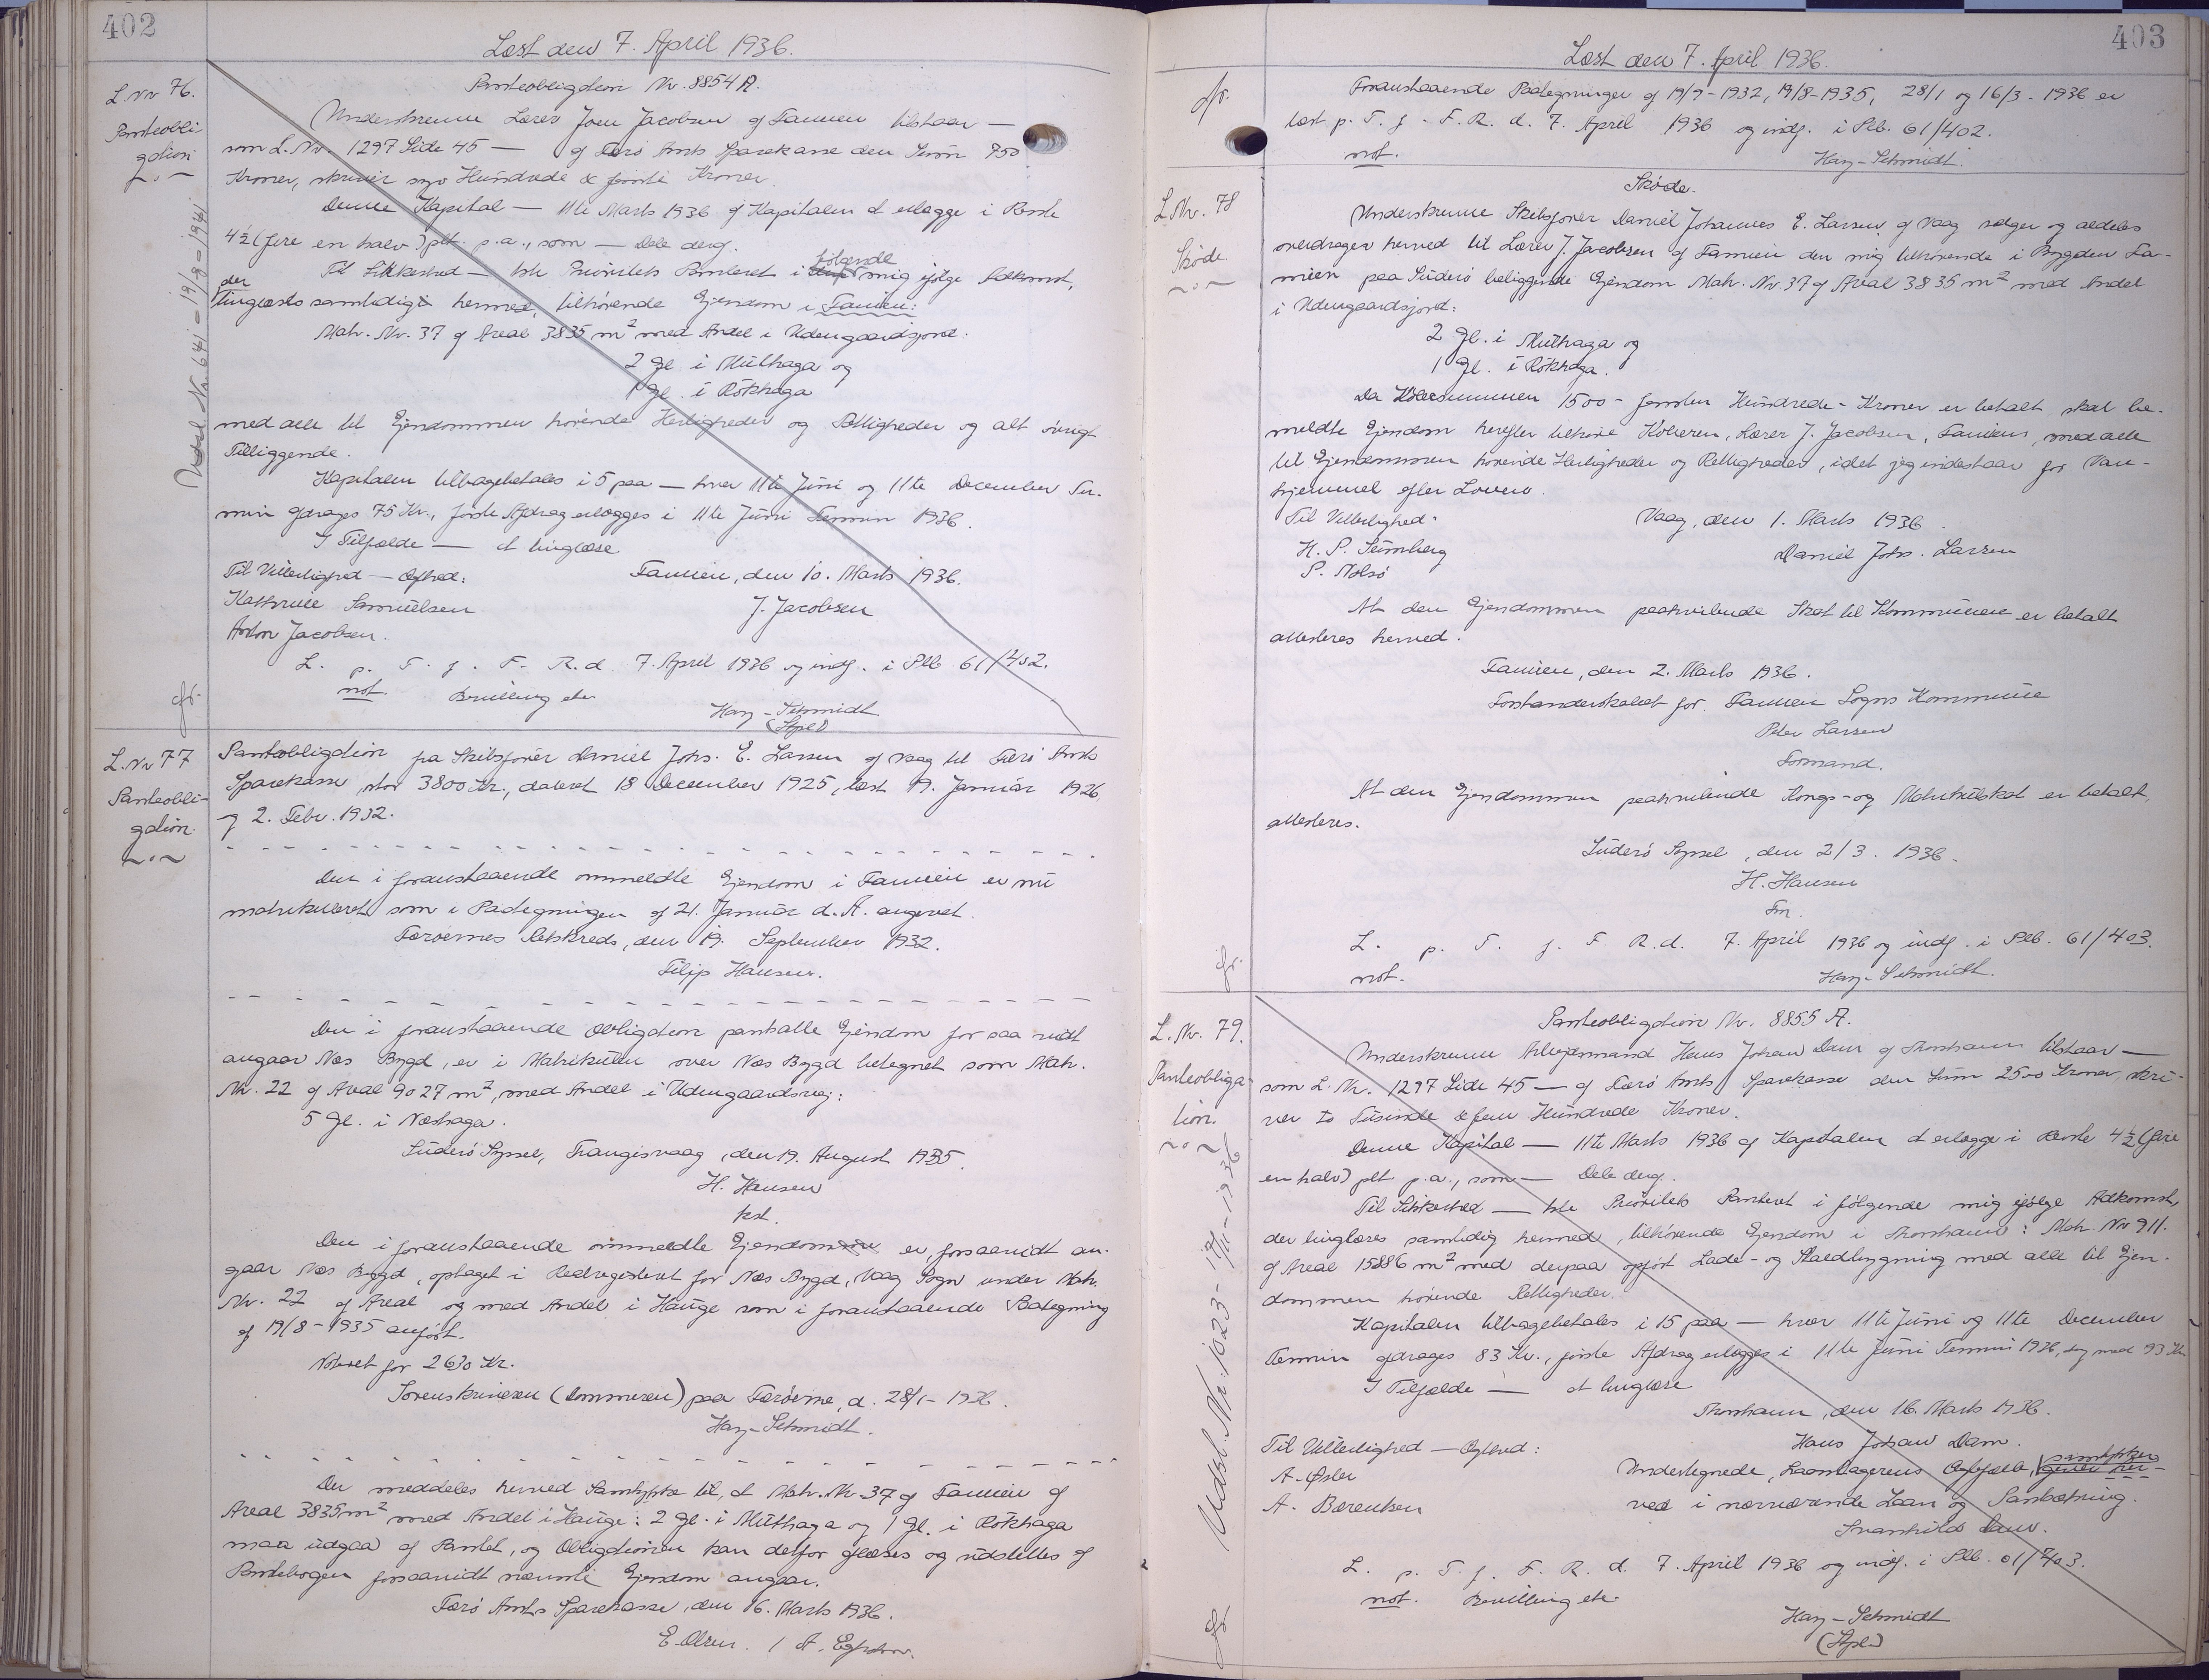 402
Læst den 7. April 1936.
L. Nr 76.
Panteobli
gation
Udsl. Nr. 641 - 19/8 - 1941
Panteobligation Nr. 8854 A.
Underskrevne Lærer Joen Jacobsen af Famien tilstaar —
som L. Nr. 1297 Side 45 — af Færø Amts Sparekasse den Sum 750
Kroner, skriver syv Hundrede & femti Kroner.
Denne Kapital — 11te Marts 1936 af Kapitalen at erlægge i Rente
4½ (fire en halv) pct. p.a., som — Dele deraf.
Til Sikkerhed — 1ste Prioritets Panteret i følgende mig ifølge Adkomst,
der tinglæses samtidigt hermed, tilhørende Ejendom i Famien:
Matr. Nr. 37 af Areal 3835 m² med Andel i Udengaardsjord:
2 Gl. i Múlhaga og
1 Gl. i Rókhaga
med alle til Ejendommen hørende Herligheder og Rettigheder og alt øvrigt
Tilliggende.
Kapitalen tilbagebetales i 5 paa — hver 11te Juni og 11te December Ter-
min afdrages 75 Kr., første Afdrag erlægges i 11te Juni Termin 1936.
I Tilfælde — at tinglæse
Til Vitterlighed — Myndighed:
Famien, den 10. Marts 1936.
Kathrine Samuelsen
J. Jacobsen
Anton Jacobsen.
L. p. T. f. F. R. d. 7. April 1936 og indf. i Pb. 61/402.
not. Bevilling etc.
Hay-Schmidt
(Stpl.)
L. Nr 77
Panteobli-
gation.
Panteobligation fra Skibsfører Daniel Johs. E. Larsen af Vaag til Færø Amts
Sparekasse, stor 3800 Kr., dateret 18 December 1925, læst 19. Januar 1926
og 2. Febr. 1932.
Den i foranstaaende ommeldte Ejendom i Famien er nu
matrikuleret som i Paategningen af 21. Januar d. A. angivet.
Færøernes Retskreds, den 19. September 1932.
Filip Hansen.
Den i foranstaaende Obligation pantsatte Ejendom for saa vidt
angaar Næs Bygd, er i Matrikulen over Næs Bygd betegnet som Matr.
Nr. 22 af Areal 9027 m², med Andel i Udengaardsvej:
5 Gl. i Næshaga.
Suderø Syssel, Trangisvaag, den 19. August 1935.
H. Hansen
kst.
Den i foranstaaende ommeldte Ejendom er, forsaavidt an-
gaar Næs Bygd, optaget i Realregisteret for Næs Bygd, Vaag Sogn under Matr.
Nr. 22 af Areal og med Andel i Hauge som i foranstaaende Paategning
af 19/8 - 1935 anført.
Noteret for 2630 Kr.
Sorenskriveren (Dommeren) paa Færøerne, d. 28/1 - 1936.
Hay-Schmidt.
Der meddeles herved Samtykke til, at Matr. Nr. 37 af Famien af
Areal 3835 m² med Andel i Hauge: 2 Gl. i Múlhaga og 1 Gl. i Rókhaga
maa udgaa af Pantet, og Obligationen kan derfor aflæses og udslettes af
Pantebogen forsaavidt nævnte Ejendom angaar.
Færø Amts Sparekasse, den 16. Marts 1936.
E. Olsen. / A.
403
Læst den 7. April 1936.
Foranstaaende Paategninger af 19/9 - 1932, 19/8 - 1935, 28/1 og 16/3 - 1936 er
læst p. T. f. F. R. d. 7. April 1936 og indf. i Pb. 61/402.
not.
Hay-Schmidt.
L. Nr. 78
Skøde
Skøde.
Underskrevne Skibsfører Daniel Johannes E. Larsen af Vaag sælger og aldeles
overdrager herved til Lærer J. Jacobsen af Famien den mig tilhørende i Bygden Fa-
mien paa Suderø beliggende Ejendom Matr. Nr. 37 af Areal 3835 m² med Andel
i Udengaardsjord:
2 Gl. i Múlhaga og
1 Gl. i Rókhaga.
Da Købesummen 1500 - femten Hundrede - Kroner er betalt skal be-
meldte Ejendom herefter tilhøre Køberen, Lærer J. Jacobsen, Famien, med alle
til Ejendommen hørende Herligheder og Rettigheder, idet jeg indestaar for Van-
hjemmel efter Loven.
Til Vitterlighed:
Vaag, den 1. Marts 1936.
H. P. Sumberg
Daniel Johs. Larsen
P. Nolsø
At den Ejendommen paahvilende Skat til Kommunen er betalt
attesteres herved.
Famien, den 2. Marts 1936.
Forstanderskabet for Famien Sogns Kommune
Peter Larsen
Formand.
At den Ejendommen paahvilende Kongs- og Matrikulskat er betalt,
attesteres.
Suderø Syssel, den 2/3. 1936.
H. Hansen
L. p. T. f. F. R. d. 7. April 1936 og indf. i Pb. 61/403.
not.
Hay-Schmidt.
L. Nr. 79.
Panteobliga
tion.
Udsl. Nr. 1023 - 19/11 - 1936
Panteobligation Nr. 8855 A.
Underskrevne Arbejdsmand Hans Johan Dam af Thorshavn tilstaar —
som L. Nr. 1297 Side 45 — af Færø Amts Sparekasse den Sum 2500 Kroner, skri-
ver to Tusinde & fem Hundrede Kroner.
Denne Kapital — 11te Marts 1936 af Kapitalen at erlægge i Rente 4½ (fire
en halv) pct p.a., som — Dele deraf.
Til Sikkerhed — 1ste Prioritets Panteret i følgende mig ifølge Adkomst,
der tinglæses samtidig hermed, tilhørende Ejendom i Thorshavn: Matr. Nr 911.
af Areal 15886 m² med derpaa opført Lade- og Staldbygning med alle til Ejen-
dommen hørende Rettigheder.
Kapitalen tilbagebetales i 15 paa — hver 11te Juni og 11te December
Termin afdrages 83 Kr., første Afdrag erlægges i 11te Juni Termin 1936, dog med 93 Kr.
I Tilfælde — at tinglæse
Thorshavn, den 16. Marts 1936.
Til Vitterlighed — Myndighed:
Hans Johan Dam.
A. Øster
Undertegnede, Laantagerens Ægtefælle, samtykker her-
A. Bærentsen
ved i nærværende Laan og Pantsætning.
Svanhild Dam.
L. p. T. f. F. R. d. 7. April 1936 og indf. i Pb. 61/403.
not. Bevilling etc.
Hay-Schmidt
(Stpl.)